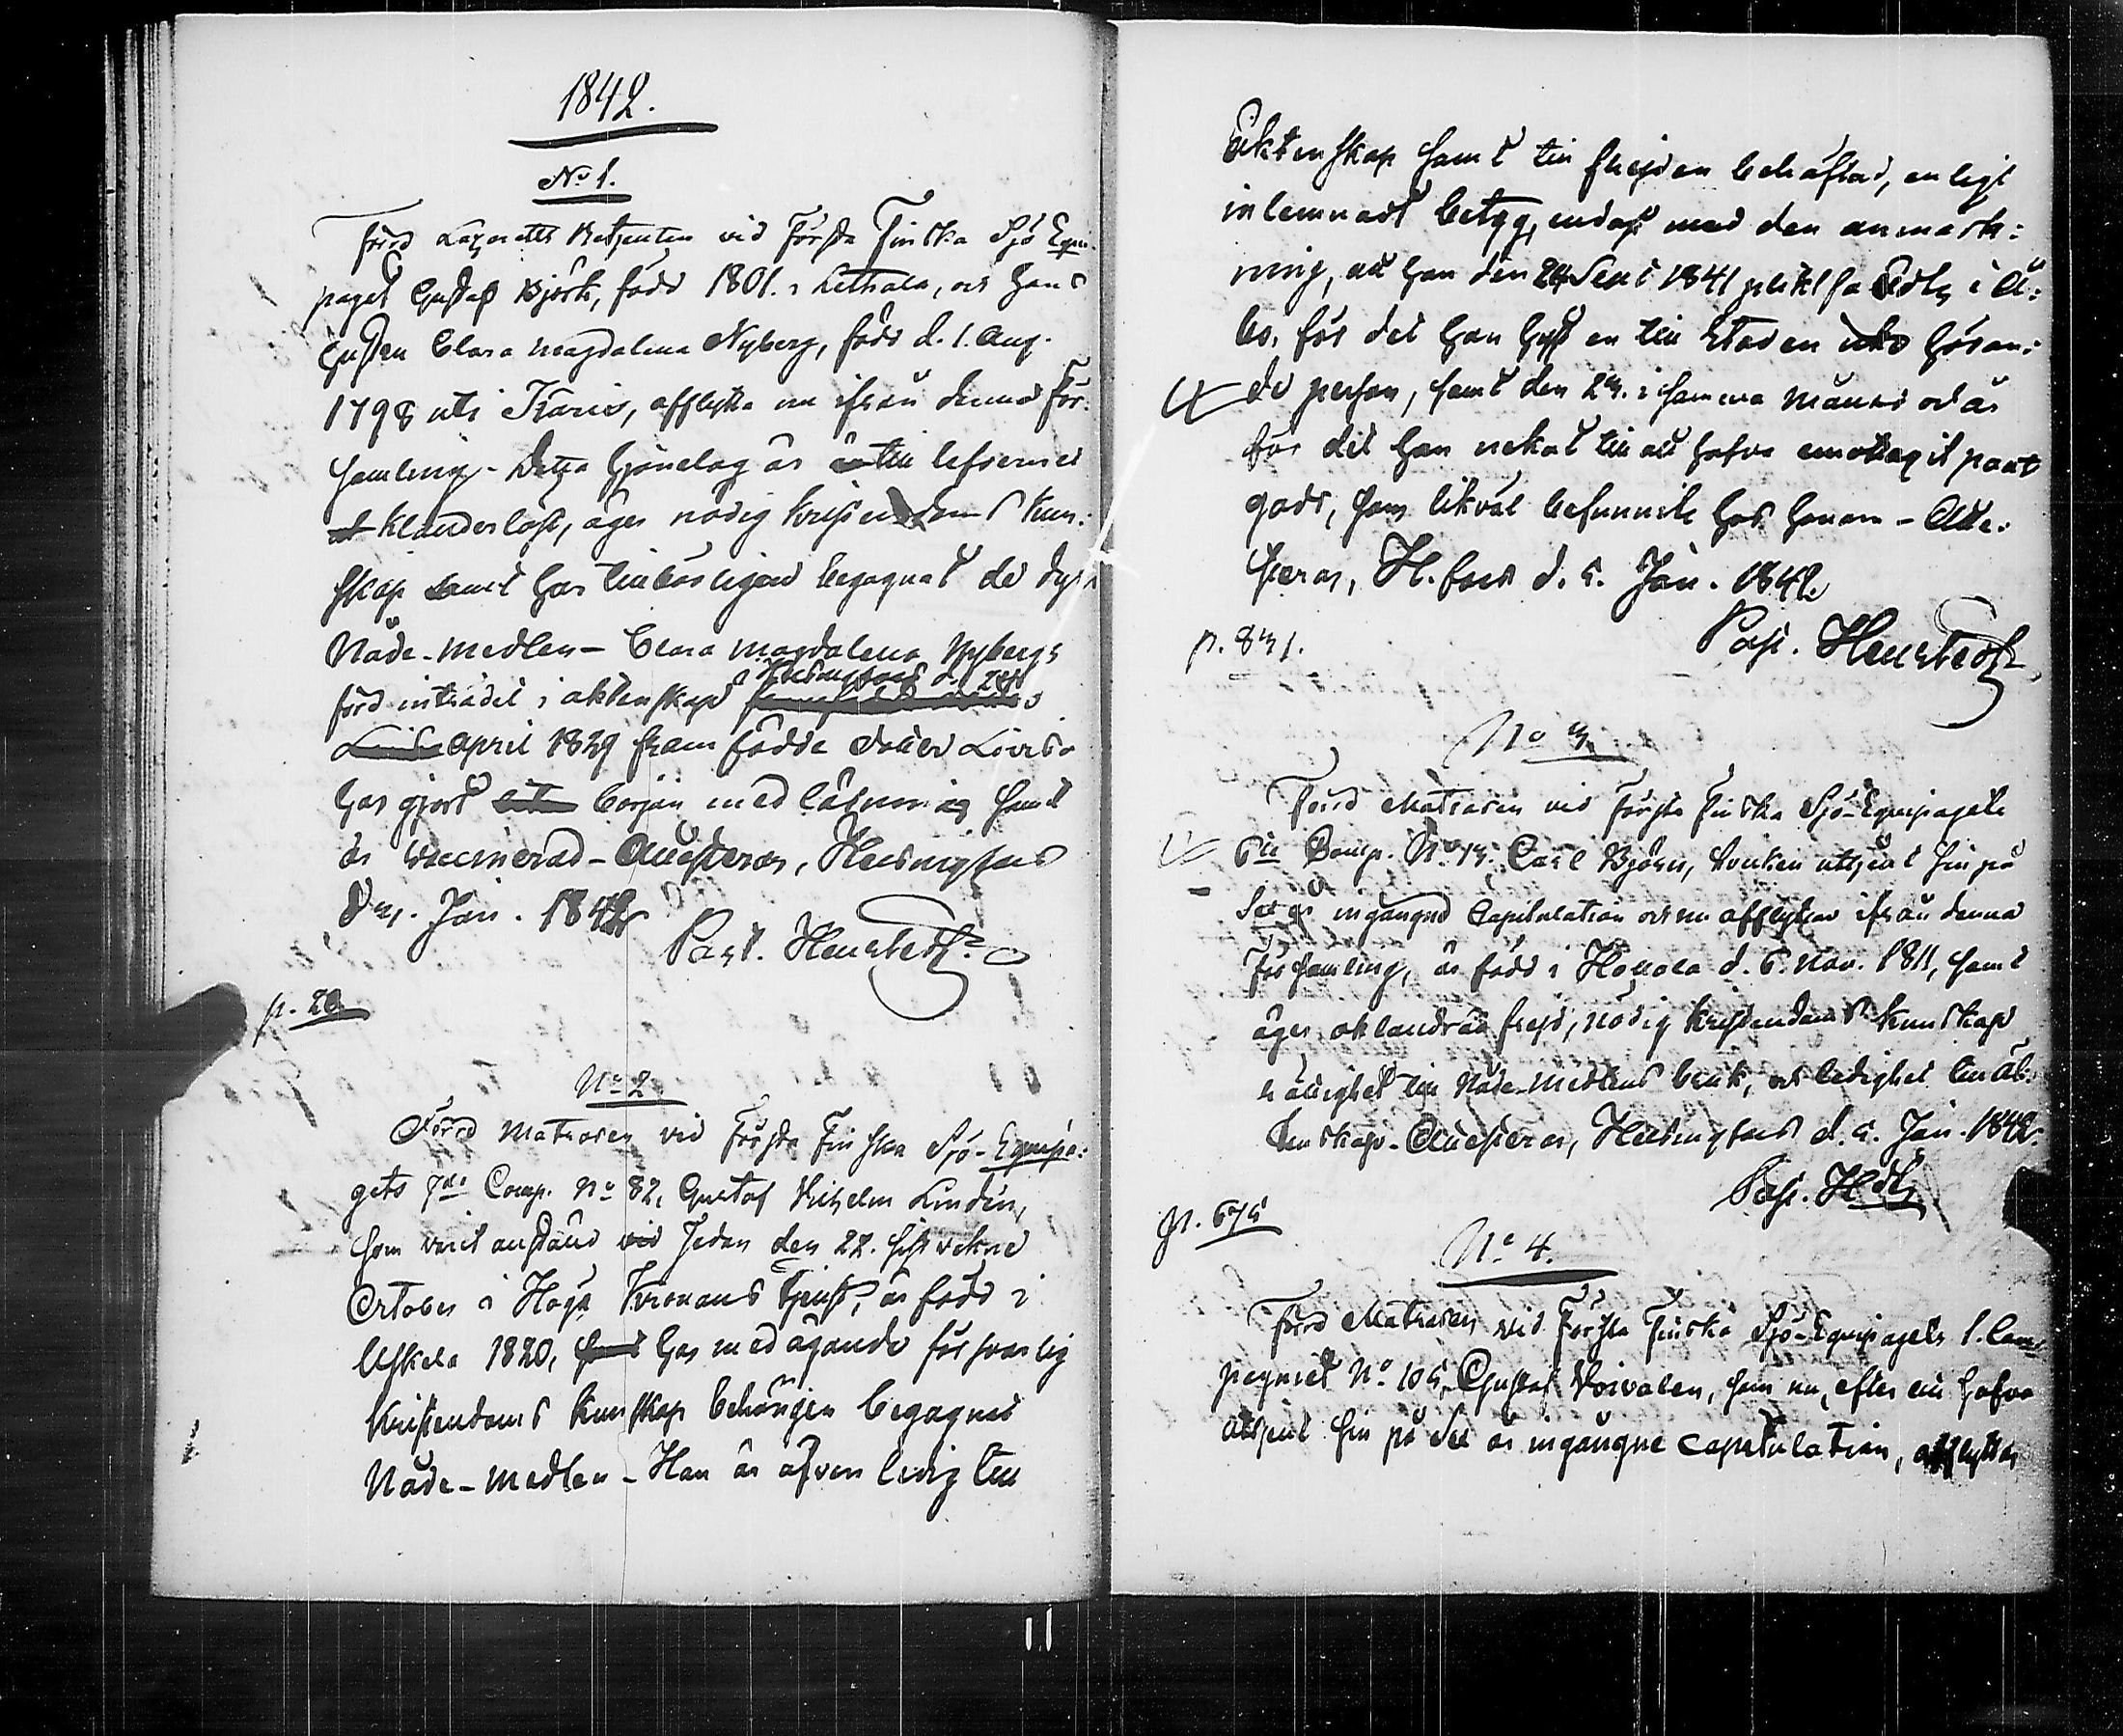 1842.
No 1.
Förd Lazaretts Betjenten vid Första Finska Sjö Equi-
paget Gustaf Björk, född 1801. i Letala, och hans
hustru Clara Magdalena Nyberg, född d. 1. Aug.
1798 uti Karis, afflytta nu ifrån denna För-
samling - Detta hjonelag är till lefvernet
klanderlöst, äger nödig kristendoms kun-
skap samt har tillbörligen begagnat de dyra
Nåde-medlen - Clara Magdalena Nybergs
förd inträdet i äktenskap i Helsingfors d. 24
April 1829 fram födde dotter Lovisa
har gjort början med läsning samt
är vaccinerad - Attesteras, Helsingfors
d. 3. Jan. 1842
Past. Henstedt
p. 20
No 2
Förd Matrosen vid Första Finska Sjö-Equipa:
gets 7de Comp. No 82, Gustaf Vilhelm Lindén,
som varit anställd sedan den 22. sistvekne
October i Höga Kronans tjenst, är född i
Uskela 1820, har med ägande försvarlig
kristendoms kunskap behörigen begagnat
Nåde-medlen - Han är äfven ledig till
Äktenskap samt till frejden behäftad, enligt
inlemnadt betyg, endast med den anmärk:
ning, att han den 24 Sent 1841 pliktfälts i Å:
bo, för det han hyst en till staden icke höran:
de person, samt den 27. i samma månad och år
för det han nekat till att hafva emottagit pant
gods, som likväl befunnits hos honom - Atte:
steras, H.fors d. 5. Jan. 1842.
p. 831.
Past. Henstedt
No 3.
Förd Matrosen vid Första Finska Sjö-Equipagets
6te Comp. No 13. Carl Björn, hvilken uttjent sin på
Sex år ingångna Capitulation och nu afflyttar ifrån denna
Församling, är född i Hollola d. 6. Nov. 1811, samt
äger oklandrad frejd, nödig kristendoms kunskap
rättighet till Nåde-medlens bruk, och ledighet till Äk-
tenskap - Attesteras, Helsingfors d. 5. Jan. 1842.
Past. Hdt
p. 675
No 4.
Förd Matrosen vid Första Finska Sjö-Equipagets 1. Com-
pagniet No 105, Gustaf Voivalen, som nu, efter att hafva
uttjent sin på Sex år ingångne Capitulation, afflyttar